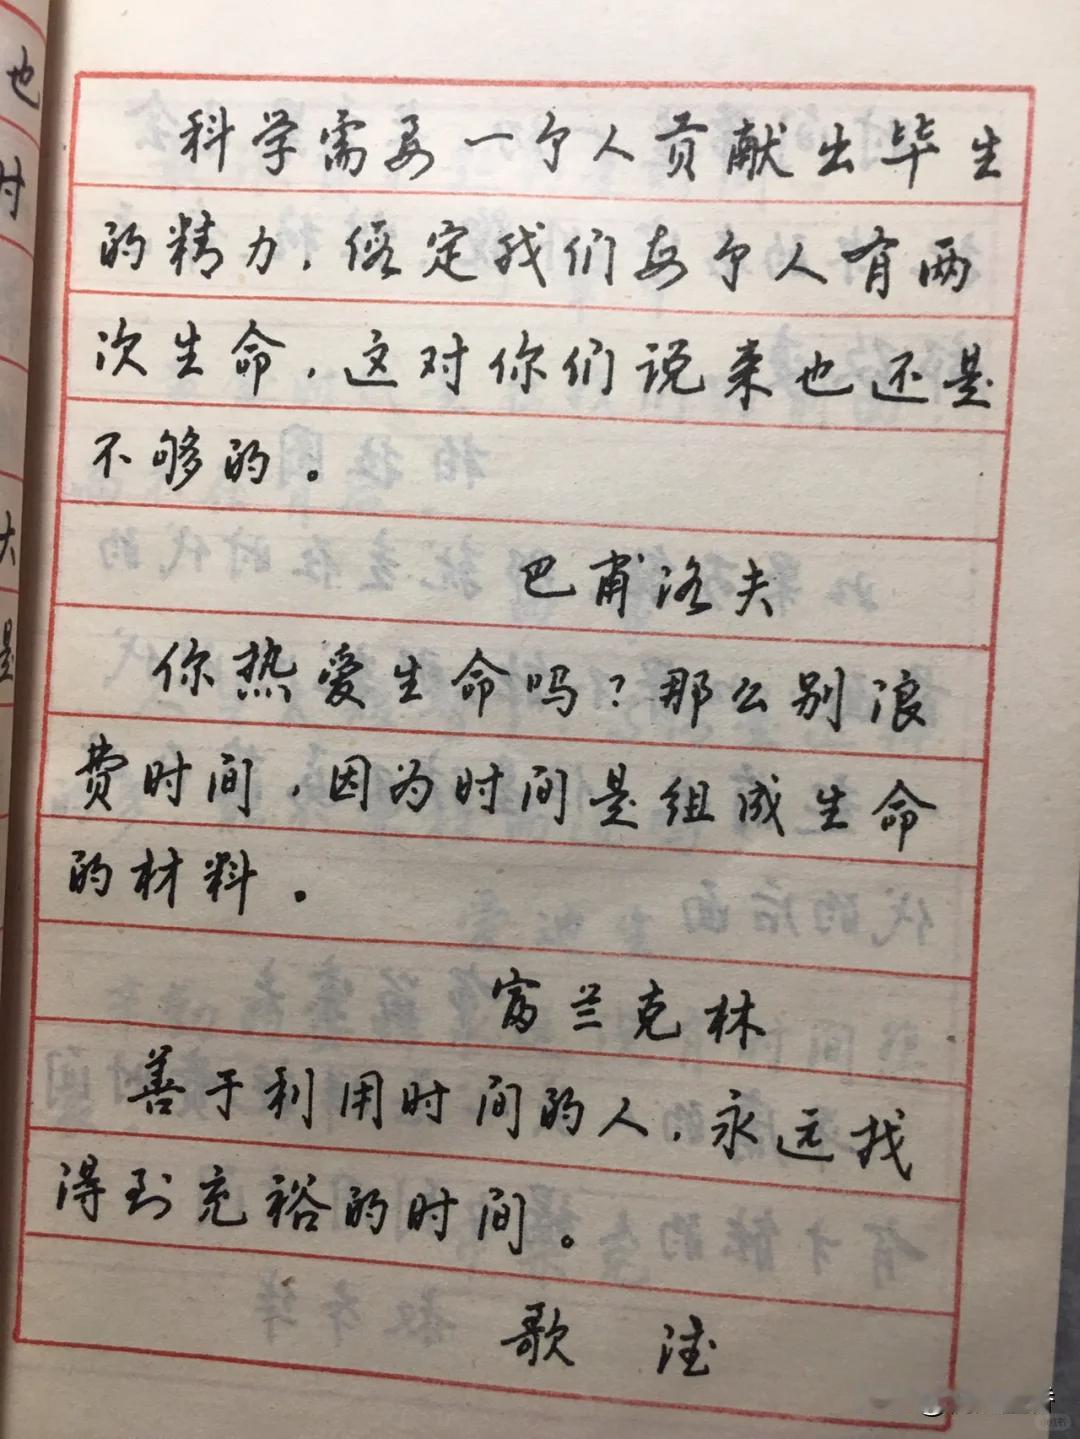 科学需要一个人贡献出毕生
的精力，假定我们每个人有两
次生命，这对你们说来也还是
不够的。
巴甫洛夫
你热爱生命吗？那么别浪
费时间，因为时间是组成生命
的材料。
富兰克林
善于利用时间的人，永远找
得到充裕的时间。
歌 德
也
时
大
是
小红书